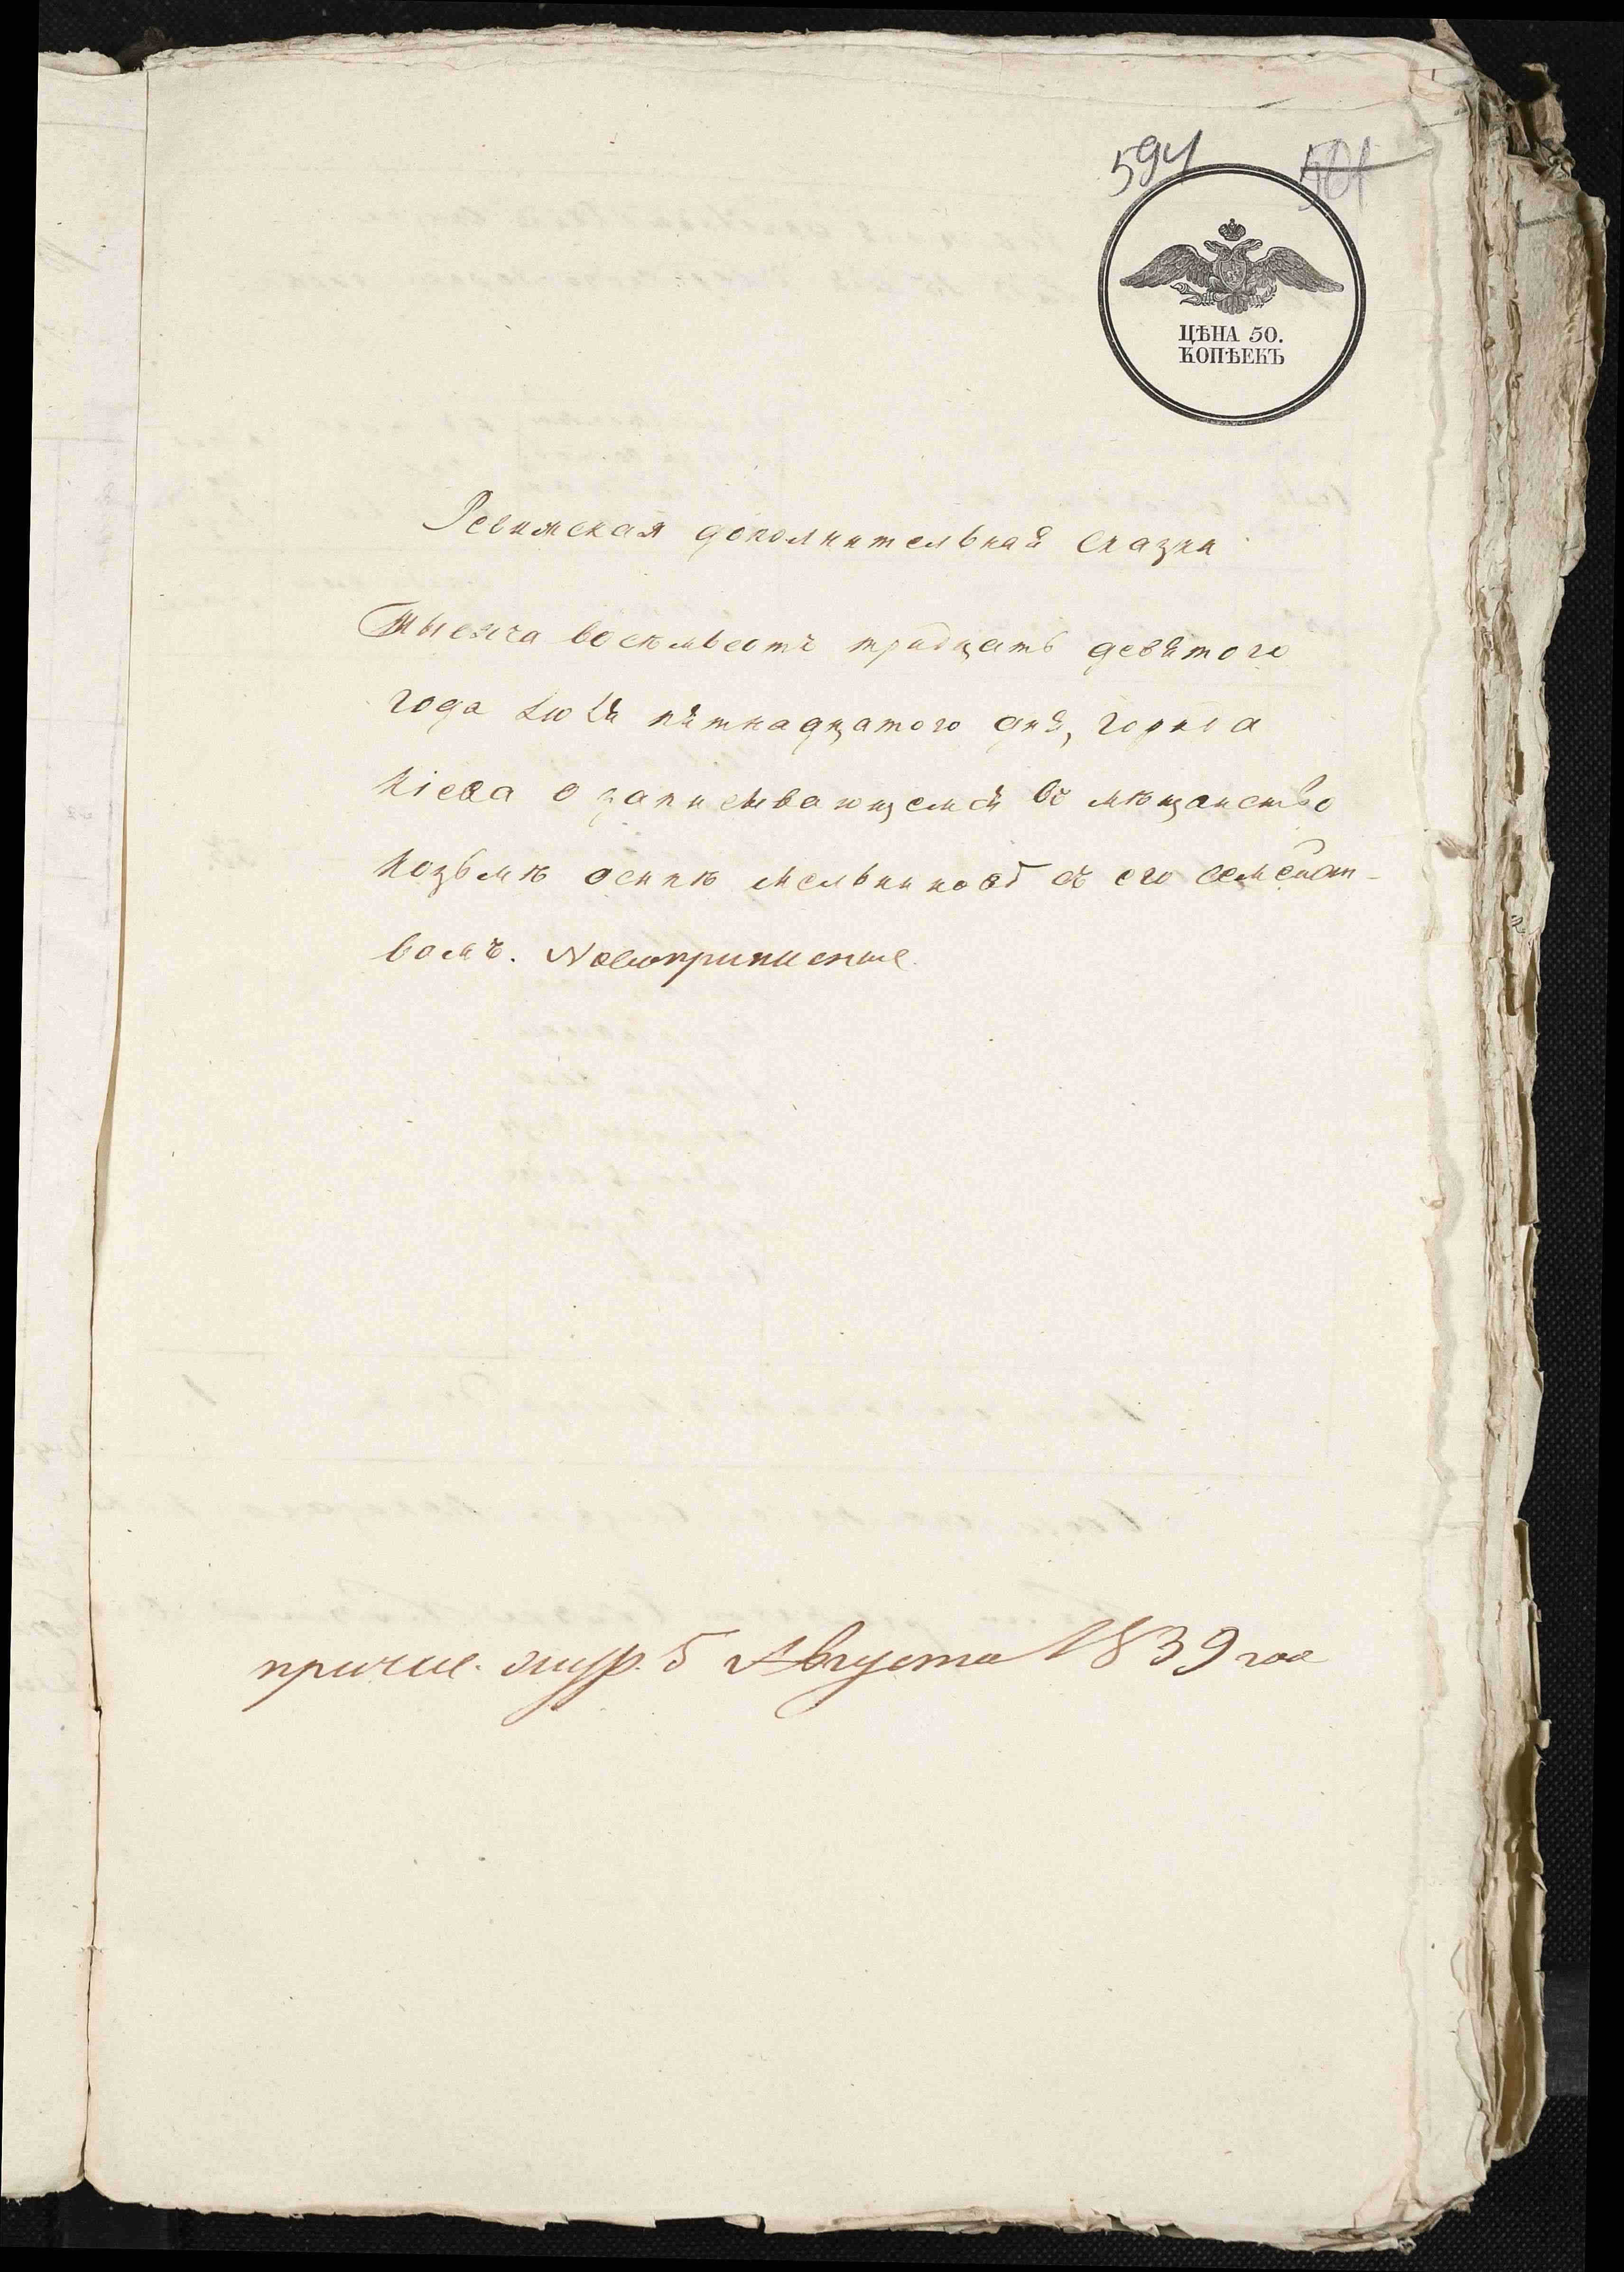 594
501
ЦѢНА 50.
КОПѢЕКЪ
Ревижская дополнительная сказка
Тысяча восемьсотъ тридцать девятого
года Июля пятнадцатого дня, города
Кіева о записывающемся въ мѣщанство
Козьмѣ Осипѣ Мельникову съ его семейст-
вомъ. Новоприписные
причис. 5 Августа 1839 года